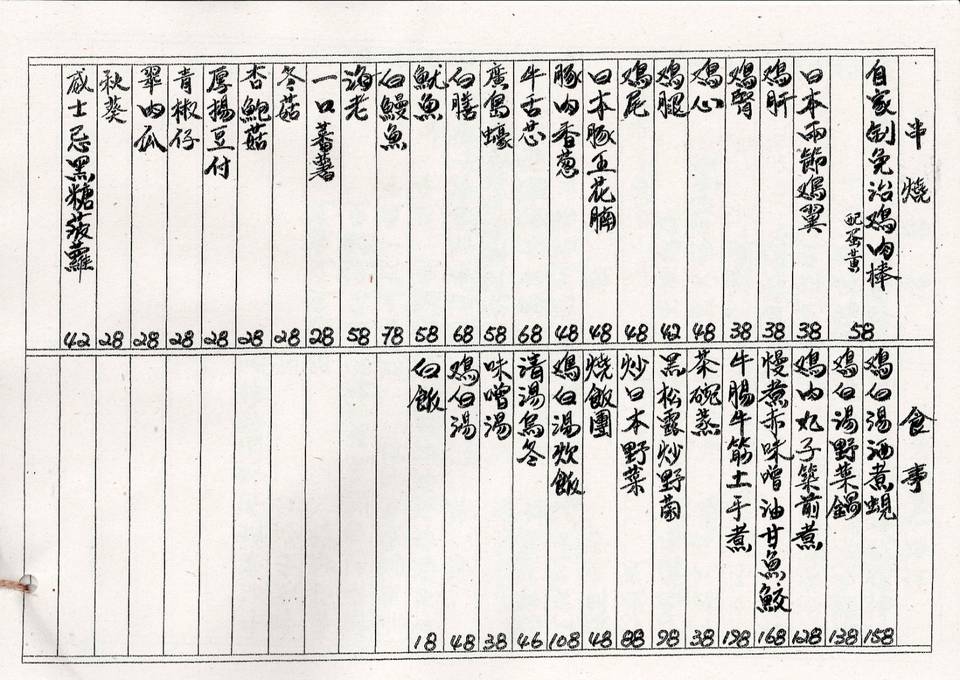 串燒
自家制免治鸡肉棒
配蛋黄
58
日本兩節鸡翼 38
鸡肝 38
鸡腎 38
鸡心 48
鸡腿 42
鸡尾 48
日本豚五花腩 48
豚肉香葱 48
牛舌芯 68
廣島蠔 58
白膳 68
魷魚 58
白鰻魚 78
海老 58
一口蕃薯 28
冬菇 28
杏鮑菇 28
厚揚豆付 28
青椒仔 28
翠肉瓜 28
秋葵 28
威士忌黑糖菠蘿 42
食事
鸡白湯酒煮蜆 158
鸡白湯野菜鍋 138
鸡肉丸子築前煮 128
慢煮赤味噌油甘魚鮫 168
牛腸牛筋土手煮 198
茶碗蒸 38
黑松露炒野菌 98
炒日本野菜 88
燒飯團 48
鸡白湯炊飯 108
清湯烏冬 46
味噌湯 38
鸡白湯 48
白飯 18